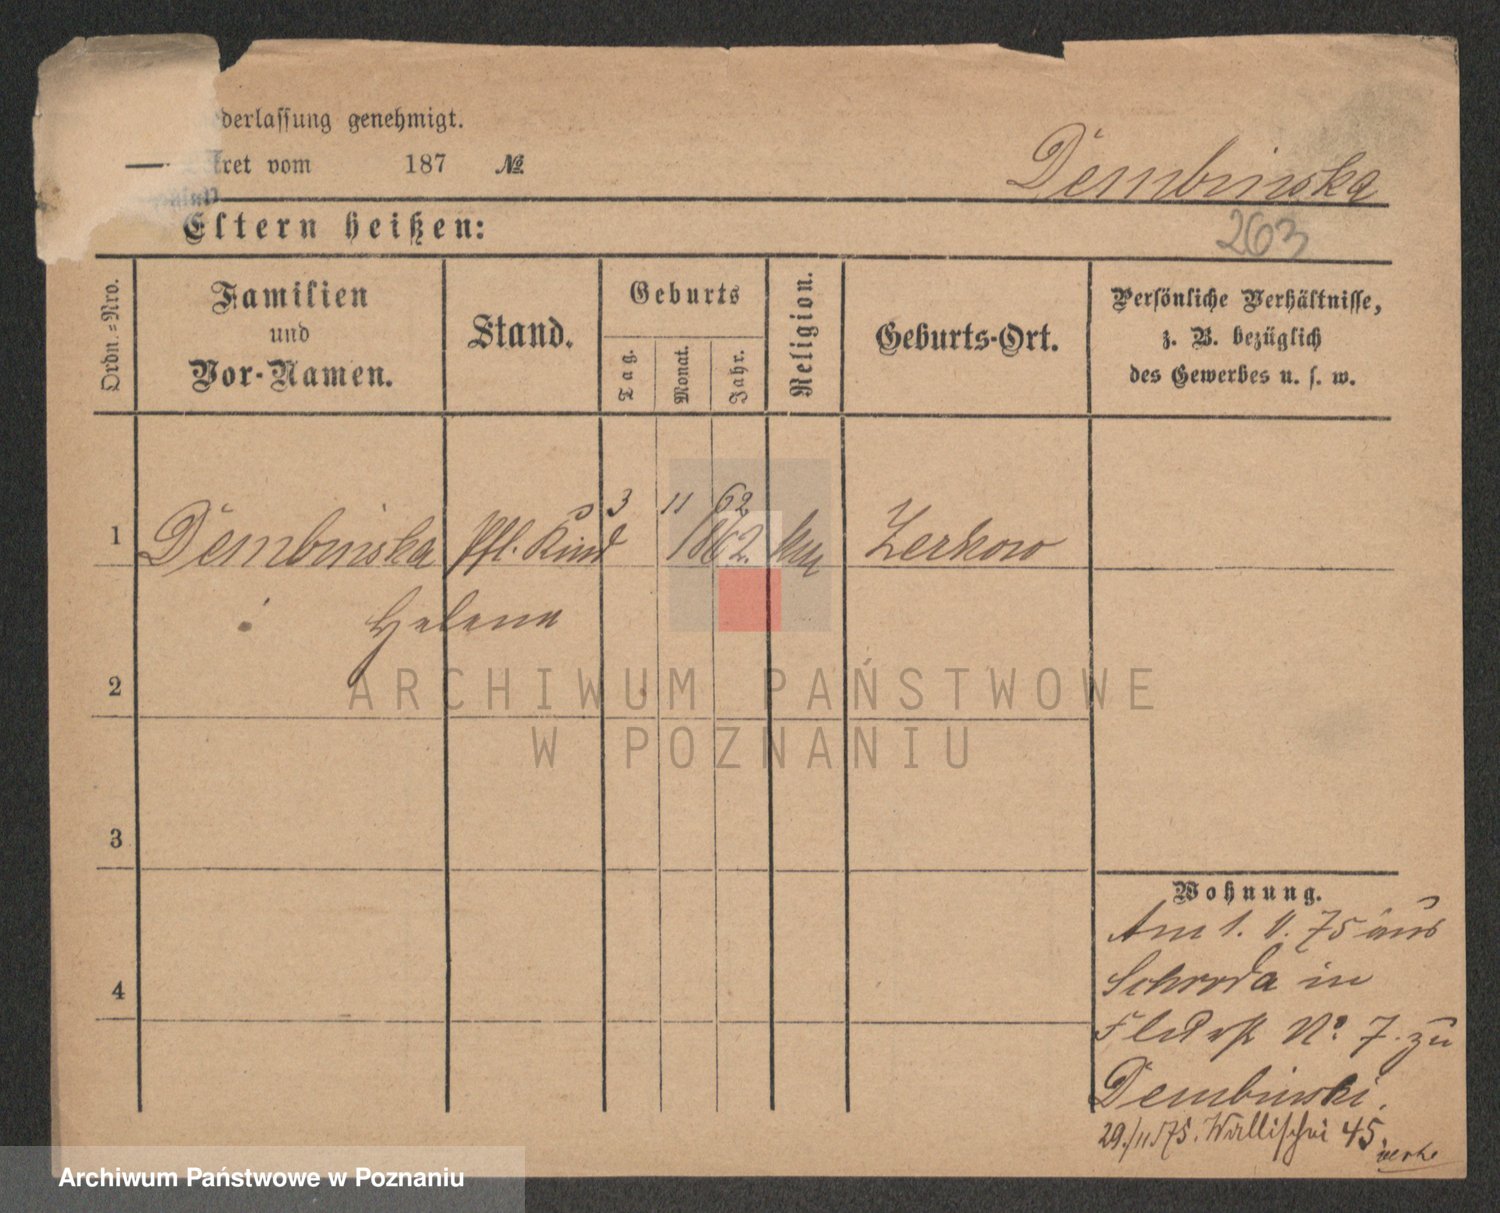 derlassung genehmigt.
kret vom 187 №
Dembinska
Eltern heißen:
263
Ordn.=Nro.
Familien
und
Vor-Namen.
Stand.
Geburts
Tag.
Monat.
Jahr.
Religion.
Geburts-Ort.
Persönliche Verhältnisse,
z. B. bezüglich
des Gewerbes u. s. w.
3 11 62
1 Dembinska Pfl. Kind 1862. Zerkow
Helena
2
ARCHIWUM PAŃSTWOWE
W POZNANIU
3
4
Wohnung.
Am 1. V. 75 aus
Schroda in
No. 7. zu
Dembinski.
29./11 75. Wallischei 45
Archiwum Państwowe w Poznaniu